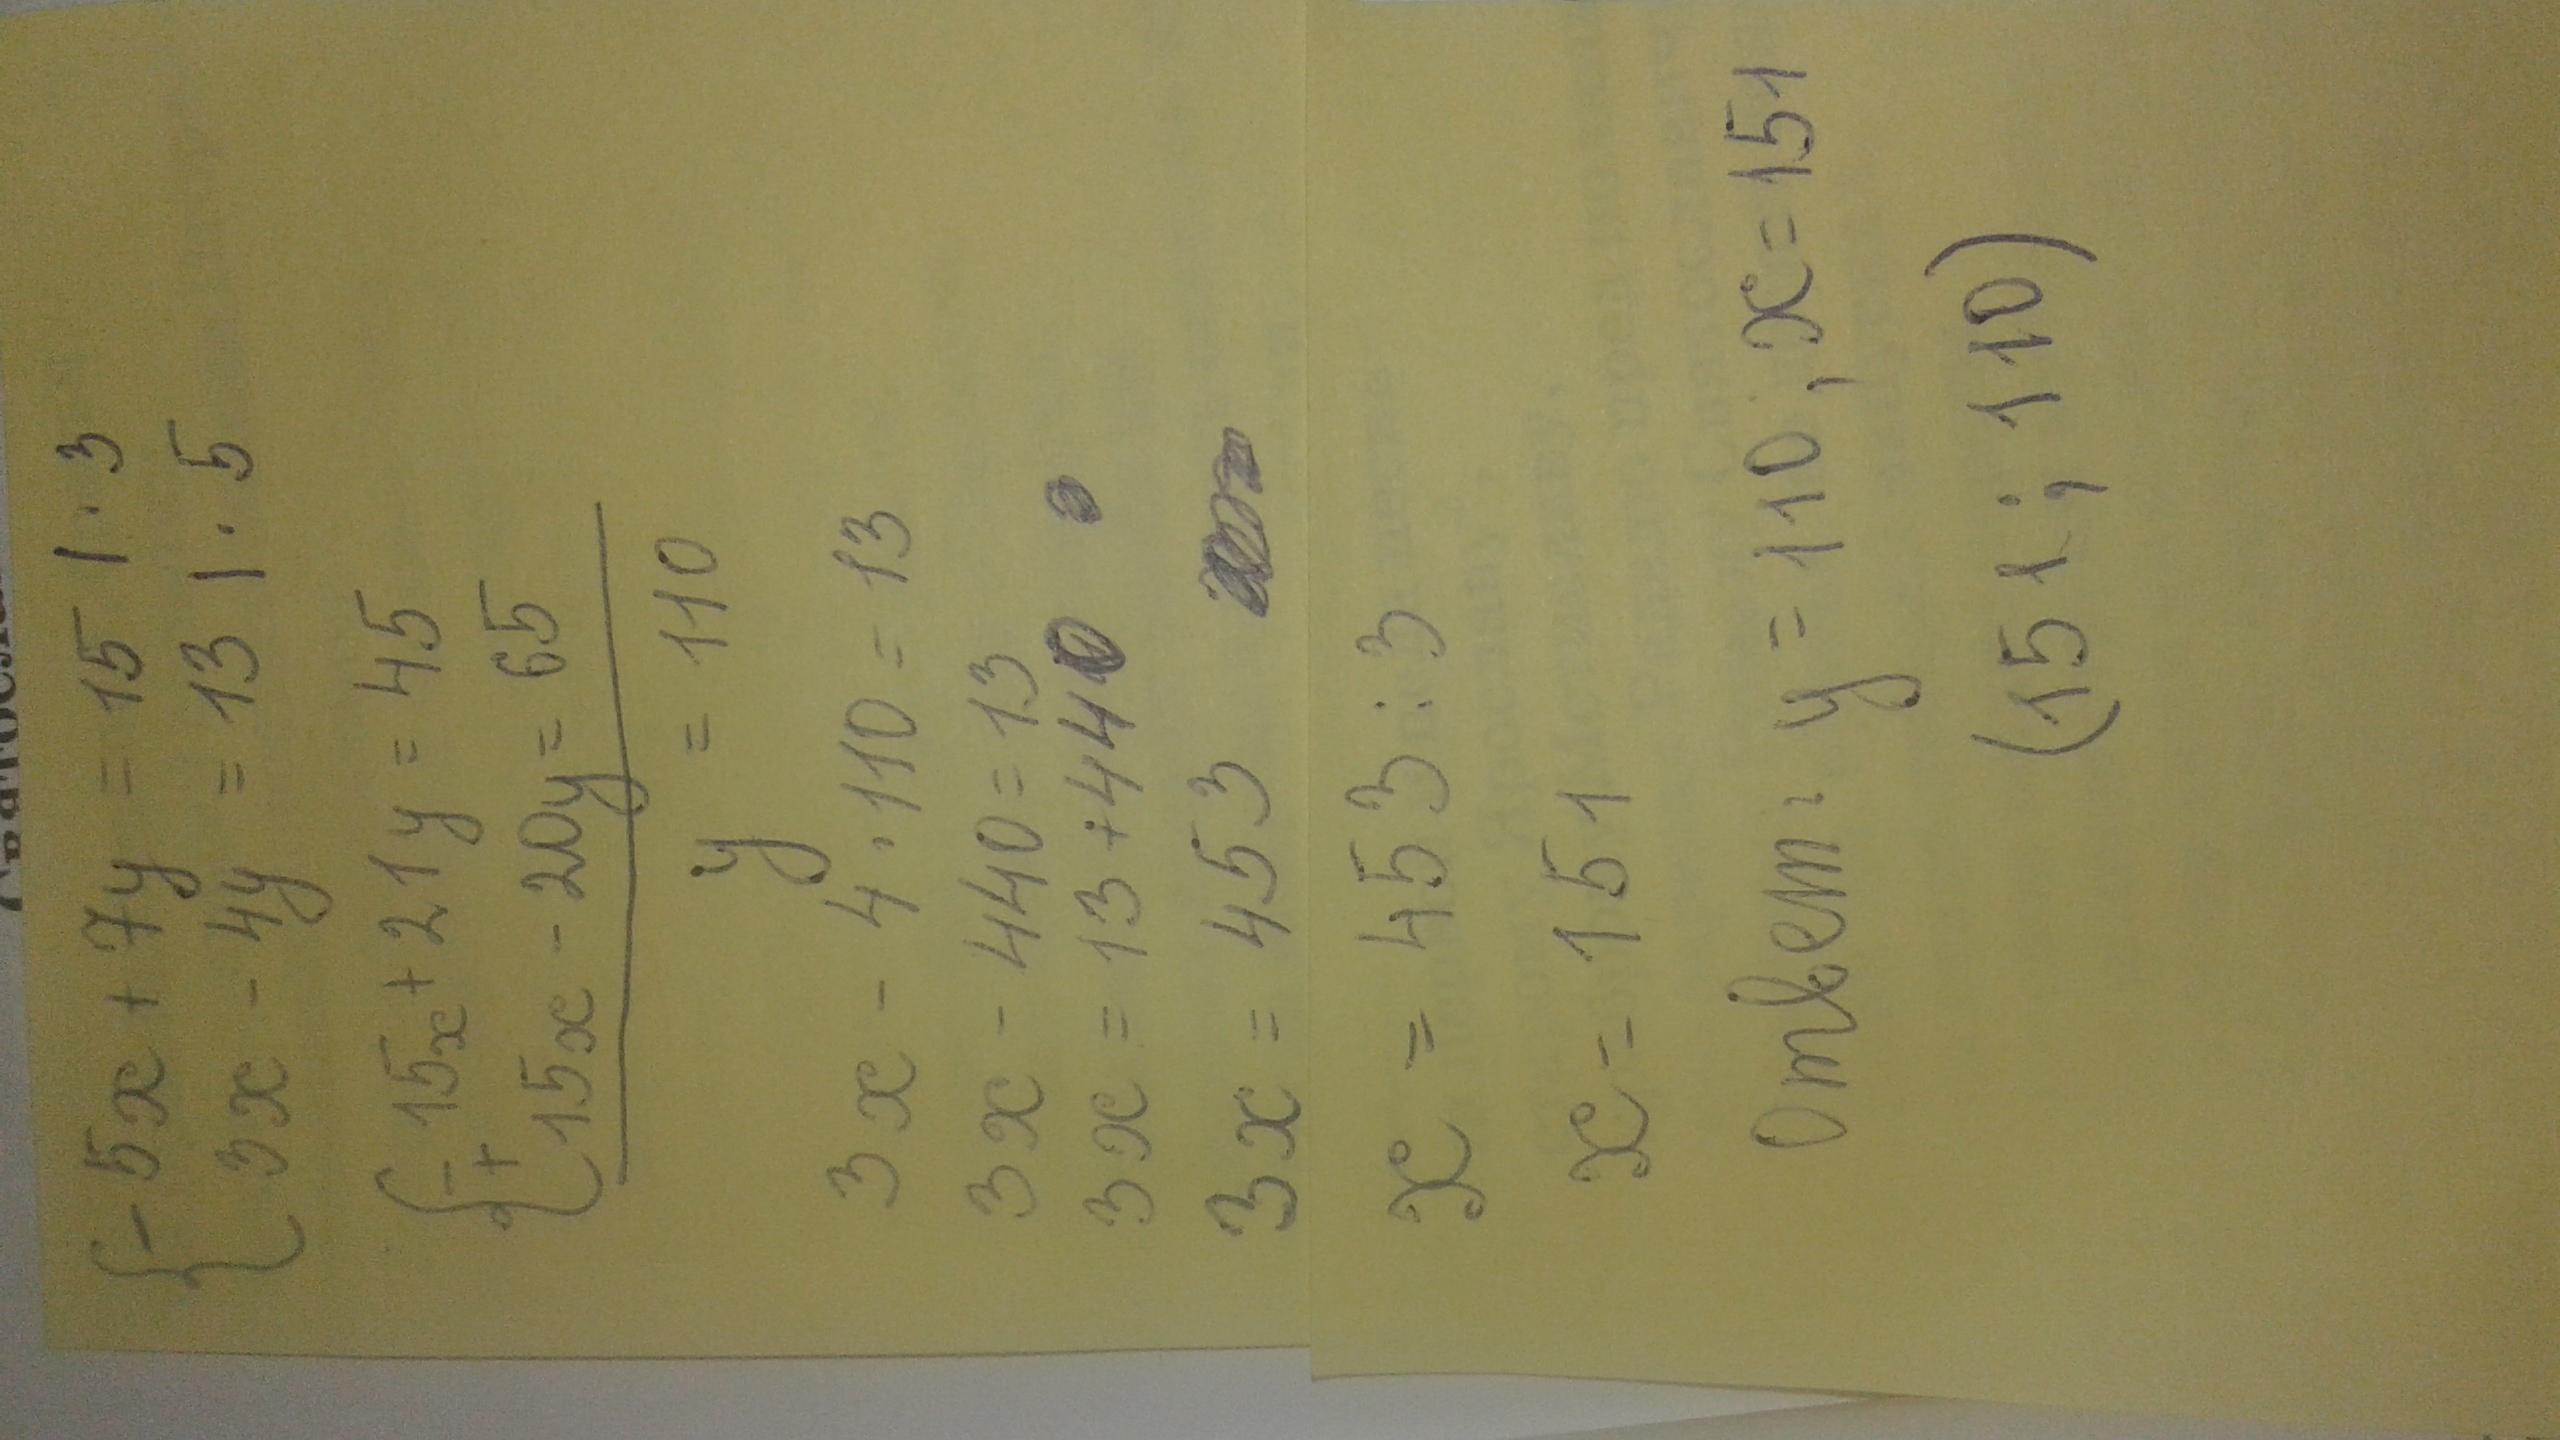 {-5x + 7y = 15 | · 3
3x - 4y = 13 | · 5
{-15x + 21y = 45
+
15x - 20y = 65
y = 110
3x - 4 · 110 = 13
3x - 440 = 13
3x = 13 + 440
3x = 453
x = 453 : 3
x = 151
Ответ: y = 110 ; x = 151
(151 ; 110)